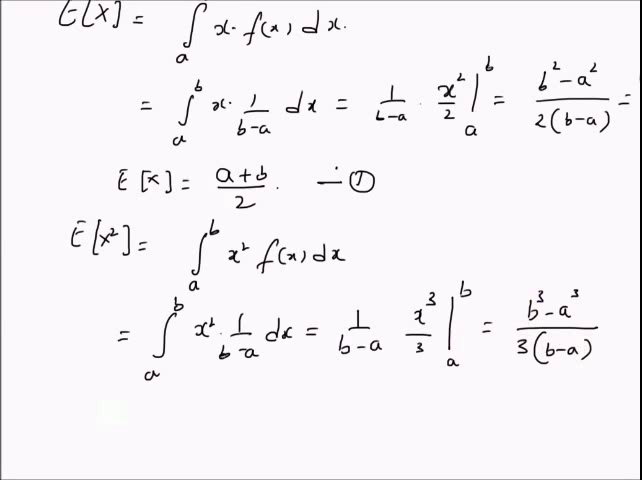 E[X] = ∫ₐ x· f(x) dx.
= ∫ₐᵇ x· 1/(b-a) dx = 1/(b-a) · x²/2 |ₐᵇ = (b²-a²)/(2(b-a)) =
E[X] = (a+b)/2. —①
E[X²] = ∫ₐᵇ x² f(x) dx
= ∫ₐᵇ x²· 1/(b-a) dx = 1/(b-a) x³/3 |ₐᵇ = (b³-a³)/(3(b-a))